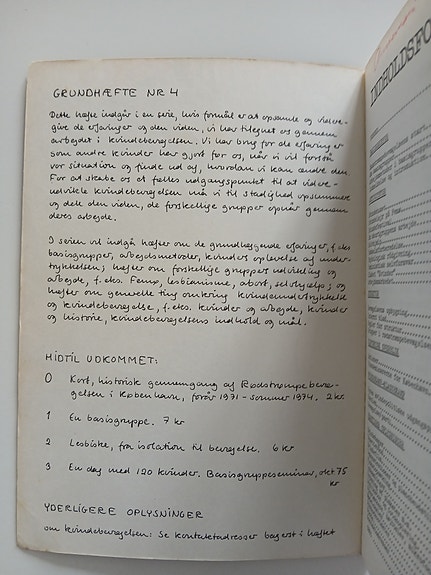 GRUNDHÆFTE NR 4
Dette hæfte indgår i en serie, hvis formål er at opsamle og videre-
give de erfaringer og den viden, vi har tilegnet os gennem
arbejdet i kvindebevægelsen. Vi har brug for de erfaringer
som andre kvinder har gjort for os, når vi vil forstå
vor situation og finde ud af, hvordan vi kan ændre den.
For at skabe os et fælles udgangspunkt til at videre-
udvikle kvindebevægelsen må vi til stadighed opsummere
og dele den viden, de forskellige grupper opnår gennem
deres arbejde.
I serien vil indgå hæfter om de grundlæggende erfaringer, f.eks
basisgrupper, arbejdsmetoder, kvinders oplevelse af under-
trykkelsen; hæfter om forskellige gruppers udvikling og
arbejde, f.eks. Femø, lesbianisme, abort, selvhjælp; og
hæfter om generelle ting omkring kvindeundertrykkelse
og kvindebevægelse, f.eks. kvinder og arbejde, kvinder
og historie, kvindebevægelsens indhold og mål.
HIDTIL UDKOMMET:
0 Kort, historisk gennemgang af Rødstrømpebevæ-
gelsen i København, forår 1971 - sommer 1974. 2 kr.
1 En basisgruppe. 7 kr
2 Lesbiske, fra isolation til bevægelse. 6 kr
3 En dag med 120 kvinder. Basisgruppeseminar, okt 75
kr
YDERLIGERE OPLYSNINGER
om kvindebevægelsen: Se kontaktadresser bagerst i hæftet
INDHOLDSFO